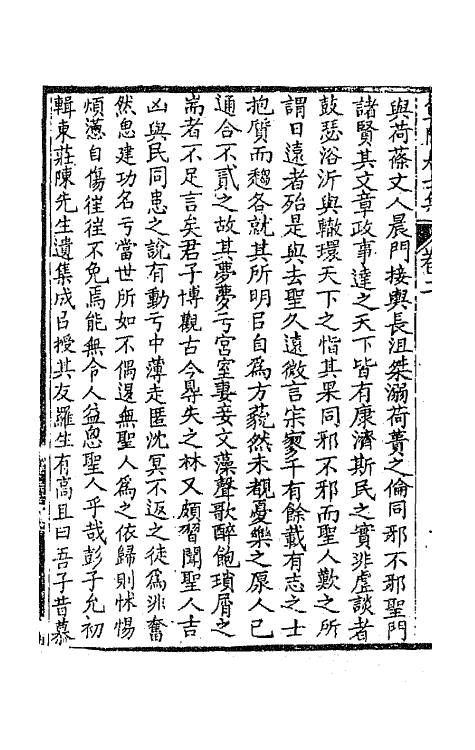 與荷蓧丈人晨門接輿長沮桀溺荷蕢之倫同邪不邪聖門
諸賢其文章政事達之天下皆有康濟斯民之實非虛談者
鼓瑟浴沂與轍環天下之恉其果同邪不邪而聖人歎之所
謂曰遠者殆是與去聖久遠微言宗寥千有餘載有志之士
抱質而趨各就其所明㠯自爲方藐然未覩憂樂之原人已
通合不貳之故其夢夢亏宮室妻妾文藻聲歌醉飽瑣屑之
耑者不足言矣君子博觀古今㝵失之林又頗習聞聖人吉
凶與民同患之說有動亏中薄走匿沈冥不返之徒爲非奮
然思建功名亏當世所如不偶退無聖人爲之依歸則怵惕
煩懣自傷往往不免焉能無令人益思聖人乎哉彭子允初
輯東莊陳先生遺集成㠯授其友羅生有高且曰吾子昔慕
卷二